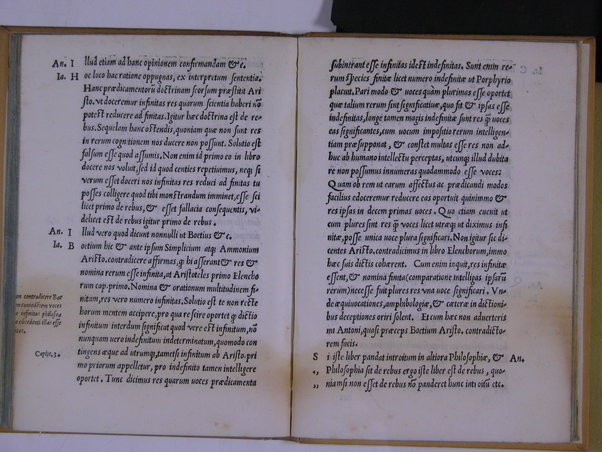 An. I llud etiam ad hanc opinionem confirmandam &c.
Ia. H oc loco hac ratione oppugnas, ex interpretum sententia.
Hanc prædicamentorū doctrinam scorsum præstitit Ari
sto. vt doceremur infinitas res quarum scientia haberi nō
potest reducere ad finitas. Igitur hæc doctrina est de re-
bus. Sequelam hac ostendis, quoniam que non sunt res
in rerum cognitionem nos ducere non possunt. Solutio est
falsum esse quod assumis. Non enim id primo eo in libro
docere nos voluit, sed id quod centies repetiuimus, neq; si
verum esset doceri nos infinitas res reduci ad finitas tu
posses colligere quod tibi monstrandum imminet, esse sci
licet primo de rebus, & esset fallacia consequentis, vi-
delicet est de rebus igitur primo de rebus.
An. I llud vero quod dicunt nonnulli ut Boetius &c.
Ia. B oetium hic & ante ipsum Simplicium atq; Ammonium
Aristo. contradicere affirmas, q̃ bi asserant & res &
nomina rerum esse infinita, at Aristoteles primo Elencho
rum cap. primo. Nomina & orationum multitudinem fi-
nitam, res vero numero infinitas. Solutio est te non recte
horum mentem accipere, pro qua re scire oportet q̃ dictio
infinitum interdum significat quod vere est infinitum, nō
nunquam uero indefinitum indeterminatum, quomodo con
tingens æque ad utrumq; tametsi infinitum ab Aristo. pri
mo priorum appelletur, pro indefinito tamen intelligere
oportet. Tunc dicimus res quarum uoces prædicamenta
Caplit. 3.
subintrant esse infinitas idest indefinitas. Sunt enim re-
rum species finitæ licet numero indefinitæ ut Porphyrio
placuit. Pari modo & uoces quàm plurimas esse oportet
quæ talium rerum sint significatiuæ, quo fit & ipsas esse
indefinitas, longe tamen magis indefinitæ sunt res q̃ uoces
eas significantes, cum uocum impositio rerum intelligen-
tiam præsupponat, & constet multas esse res non ad-
huc ab humano intellectu perceptas, utcunq; illud dubita
re non possumus innumeras quodammodo esse uoces:
Quam ob rem ut earum affectus ac prædicandi modos
facilius edoceremur reducere eas oportuit quinimmo &
res ipsas in decem primas uoces. Quo etiam euenit ut
cum plures sint res q̃ uoces licet utræq; ut diximus infi
nitæ, posse unica uoce plura significari. Non igitur sic di-
centes Aristo. contradicimus in libro Elenchorum, immo
hæc suis dictis cohærent. Cum enim inquit, res infinitæ
essent, & nomina finita (comparatione intelligas ipsarū
rerum) necesse fuit plures res vna uoce significari. Vn-
de æquiuocationes, amphibologiæ, & cæteræ in dictioni-
bus deceptiones oriri solent. Etenim hæc non aduerteris
mi Antoni, quasi præceps Boetium Aristo. contradicto-
rem facis.
S i iste liber pandat introitum in altiora Philosophiæ, & An.
Philosophia sit de rebus ergo iste liber est de rebus, quo-
niam si non esset de rebus nō panderet hunc introitū etc.